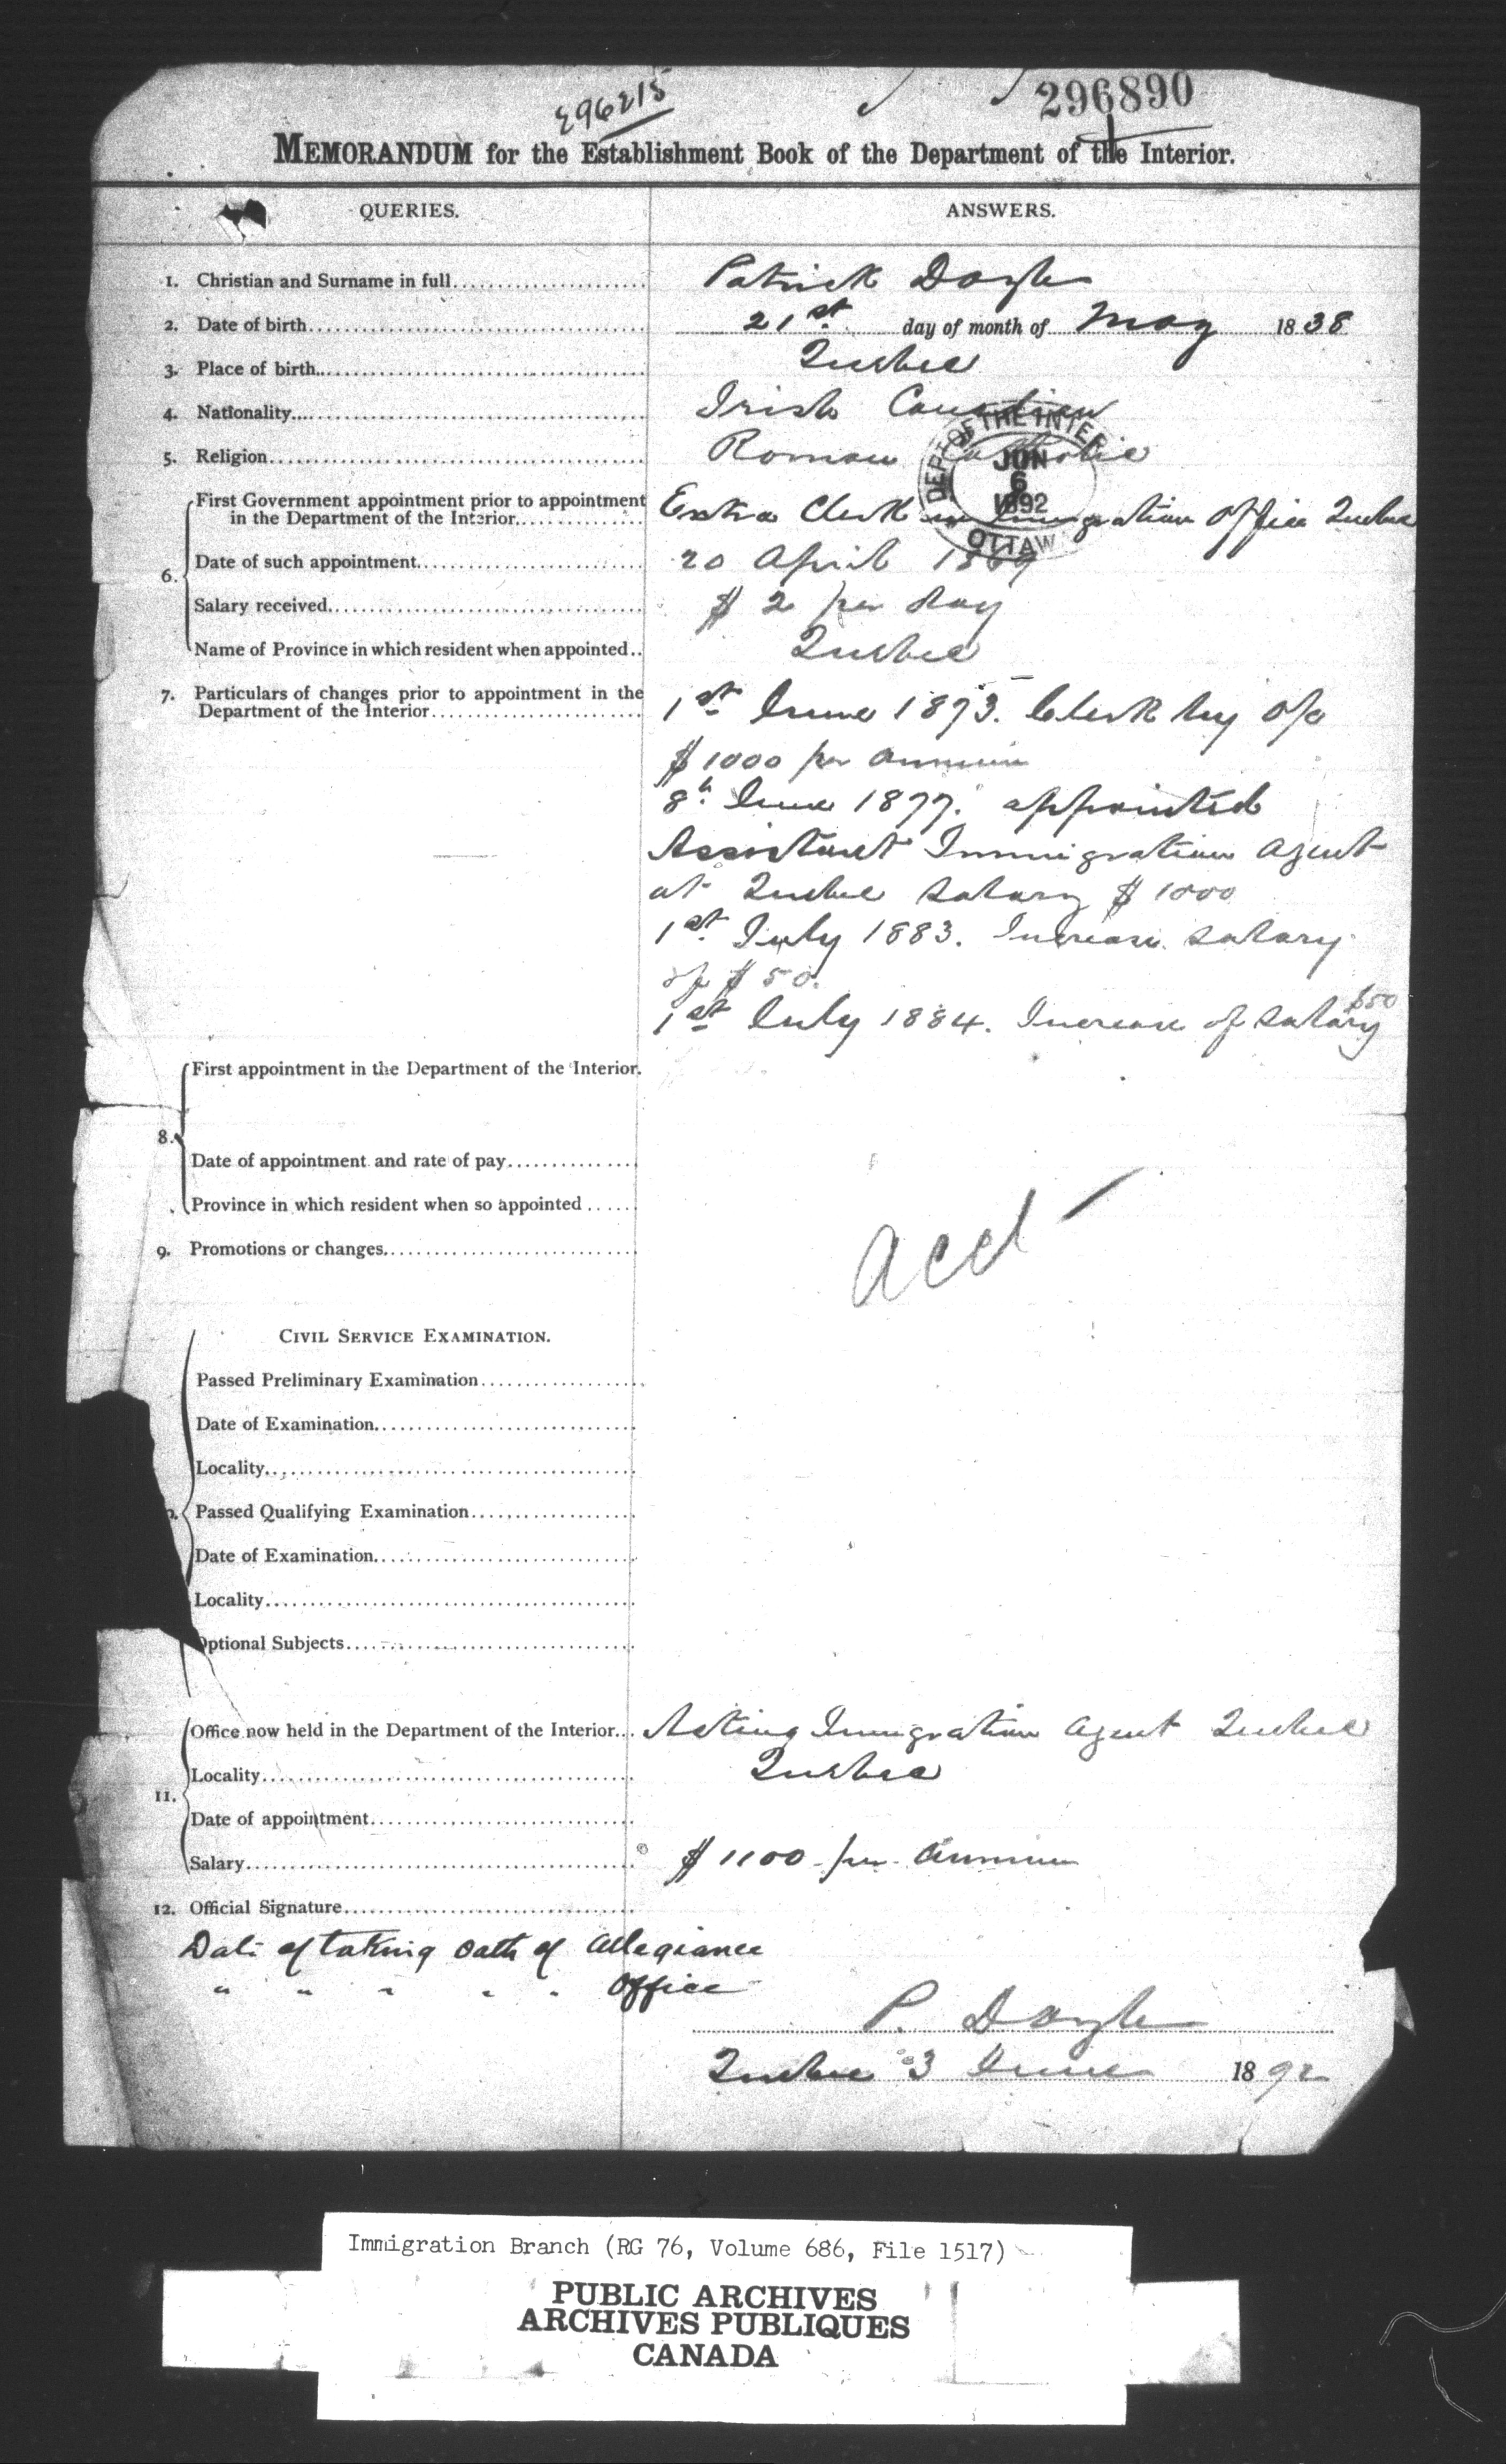 296215
296890
MEMORANDUM for the Establishment Book of the Department of the Interior.
QUERIES.
ANSWERS.
1. Christian and Surname in full
Patrick Doyle
2. Date of birth
21st. day of month of May 1838
3. Place of birth
Quebec
4. Nationality
Irish Canadian
5. Religion
Roman Catholic
DEPT. OF THE INTERI
JUN
6
1892
OTTAW
6.
First Government appointment prior to appointment
in the Department of the Interior
Extra Clerk in Immigration Office Quebec
Date of such appointment
20 April 1869
Salary received
$ 2 per day
Name of Province in which resident when appointed
Quebec
7. Particulars of changes prior to appointment in the
Department of the Interior
1st June 1873. Clerk
$1000 per annum
8th June 1877. appointed
Assistant Immigration Agent
at Quebec salary $1000
1st July 1883. Increase salary
of $50.
1st July 1884. Increase of salary $50
8.
First appointment in the Department of the Interior.
Date of appointment and rate of pay
Province in which resident when so appointed
9. Promotions or changes
acct
CIVIL SERVICE EXAMINATION.
Passed Preliminary Examination
Date of Examination
Locality
Passed Qualifying Examination
Date of Examination
Locality
Optional Subjects
11.
Office now held in the Department of the Interior
Acting Immigration Agent Quebec
Locality
Quebec
Date of appointment
Salary
$1100 per annum
12. Official Signature
Date of taking oath of Allegiance
" " " " " Office
P. Doyle
Quebec 3 June 1892
Immigration Branch (RG 76, Volume 686, File 1517)
PUBLIC ARCHIVES
ARCHIVES PUBLIQUES
CANADA